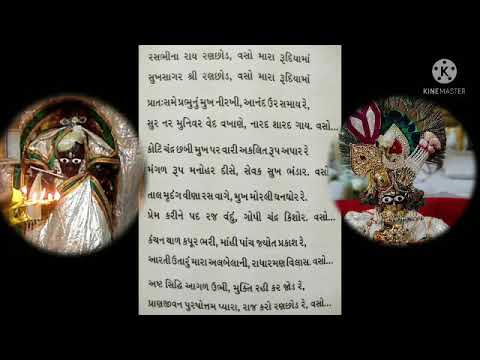 રસભીના રાય રણછોડ, વસો મારા રૂદિયામાં
સુખસાગર શ્રી રણછોડ, વસો મારા રૂદિયામાં
પ્રાતઃસમે પ્રભુનું મુખ નીરખી, આનંદ ઉર સમાય રે,
સુર નર મુનિવર વેદ વખાણે, નારદ શારદ ગાય. વસો...
કોટિ ચંદ્ર છબી મુખ પર વારી અકલિત રૂપ અપાર રે
મંગળ રૂપ મનોહર દીસે, સેવક સુખ ભંડાર. વસો
તાલ મૃદંગ વીણા રસ વાગે, મુખ મોરલી ઘનઘોર રે.
પ્રેમ કરીને પદ રજ વંદું, ગોપી ચંદ્ર કિશોર. વસો...
કંચન થાળ કપૂર ભરી, માંહી પાંચ જ્યોત પ્રકાશ રે,
આરતી ઉતારું મારા અલબેલાની, રાધારમણ વિલાસ. વસો...
અષ્ટ સિદ્ધિ આગળ ઉભી, મુક્તિ રહી કર જોડ રે,
પ્રાણજીવન પુરષોત્તમ પ્યારા, રાજ કરો રણછોડ રે, વસો...
MADE WITH
KINEMASTER